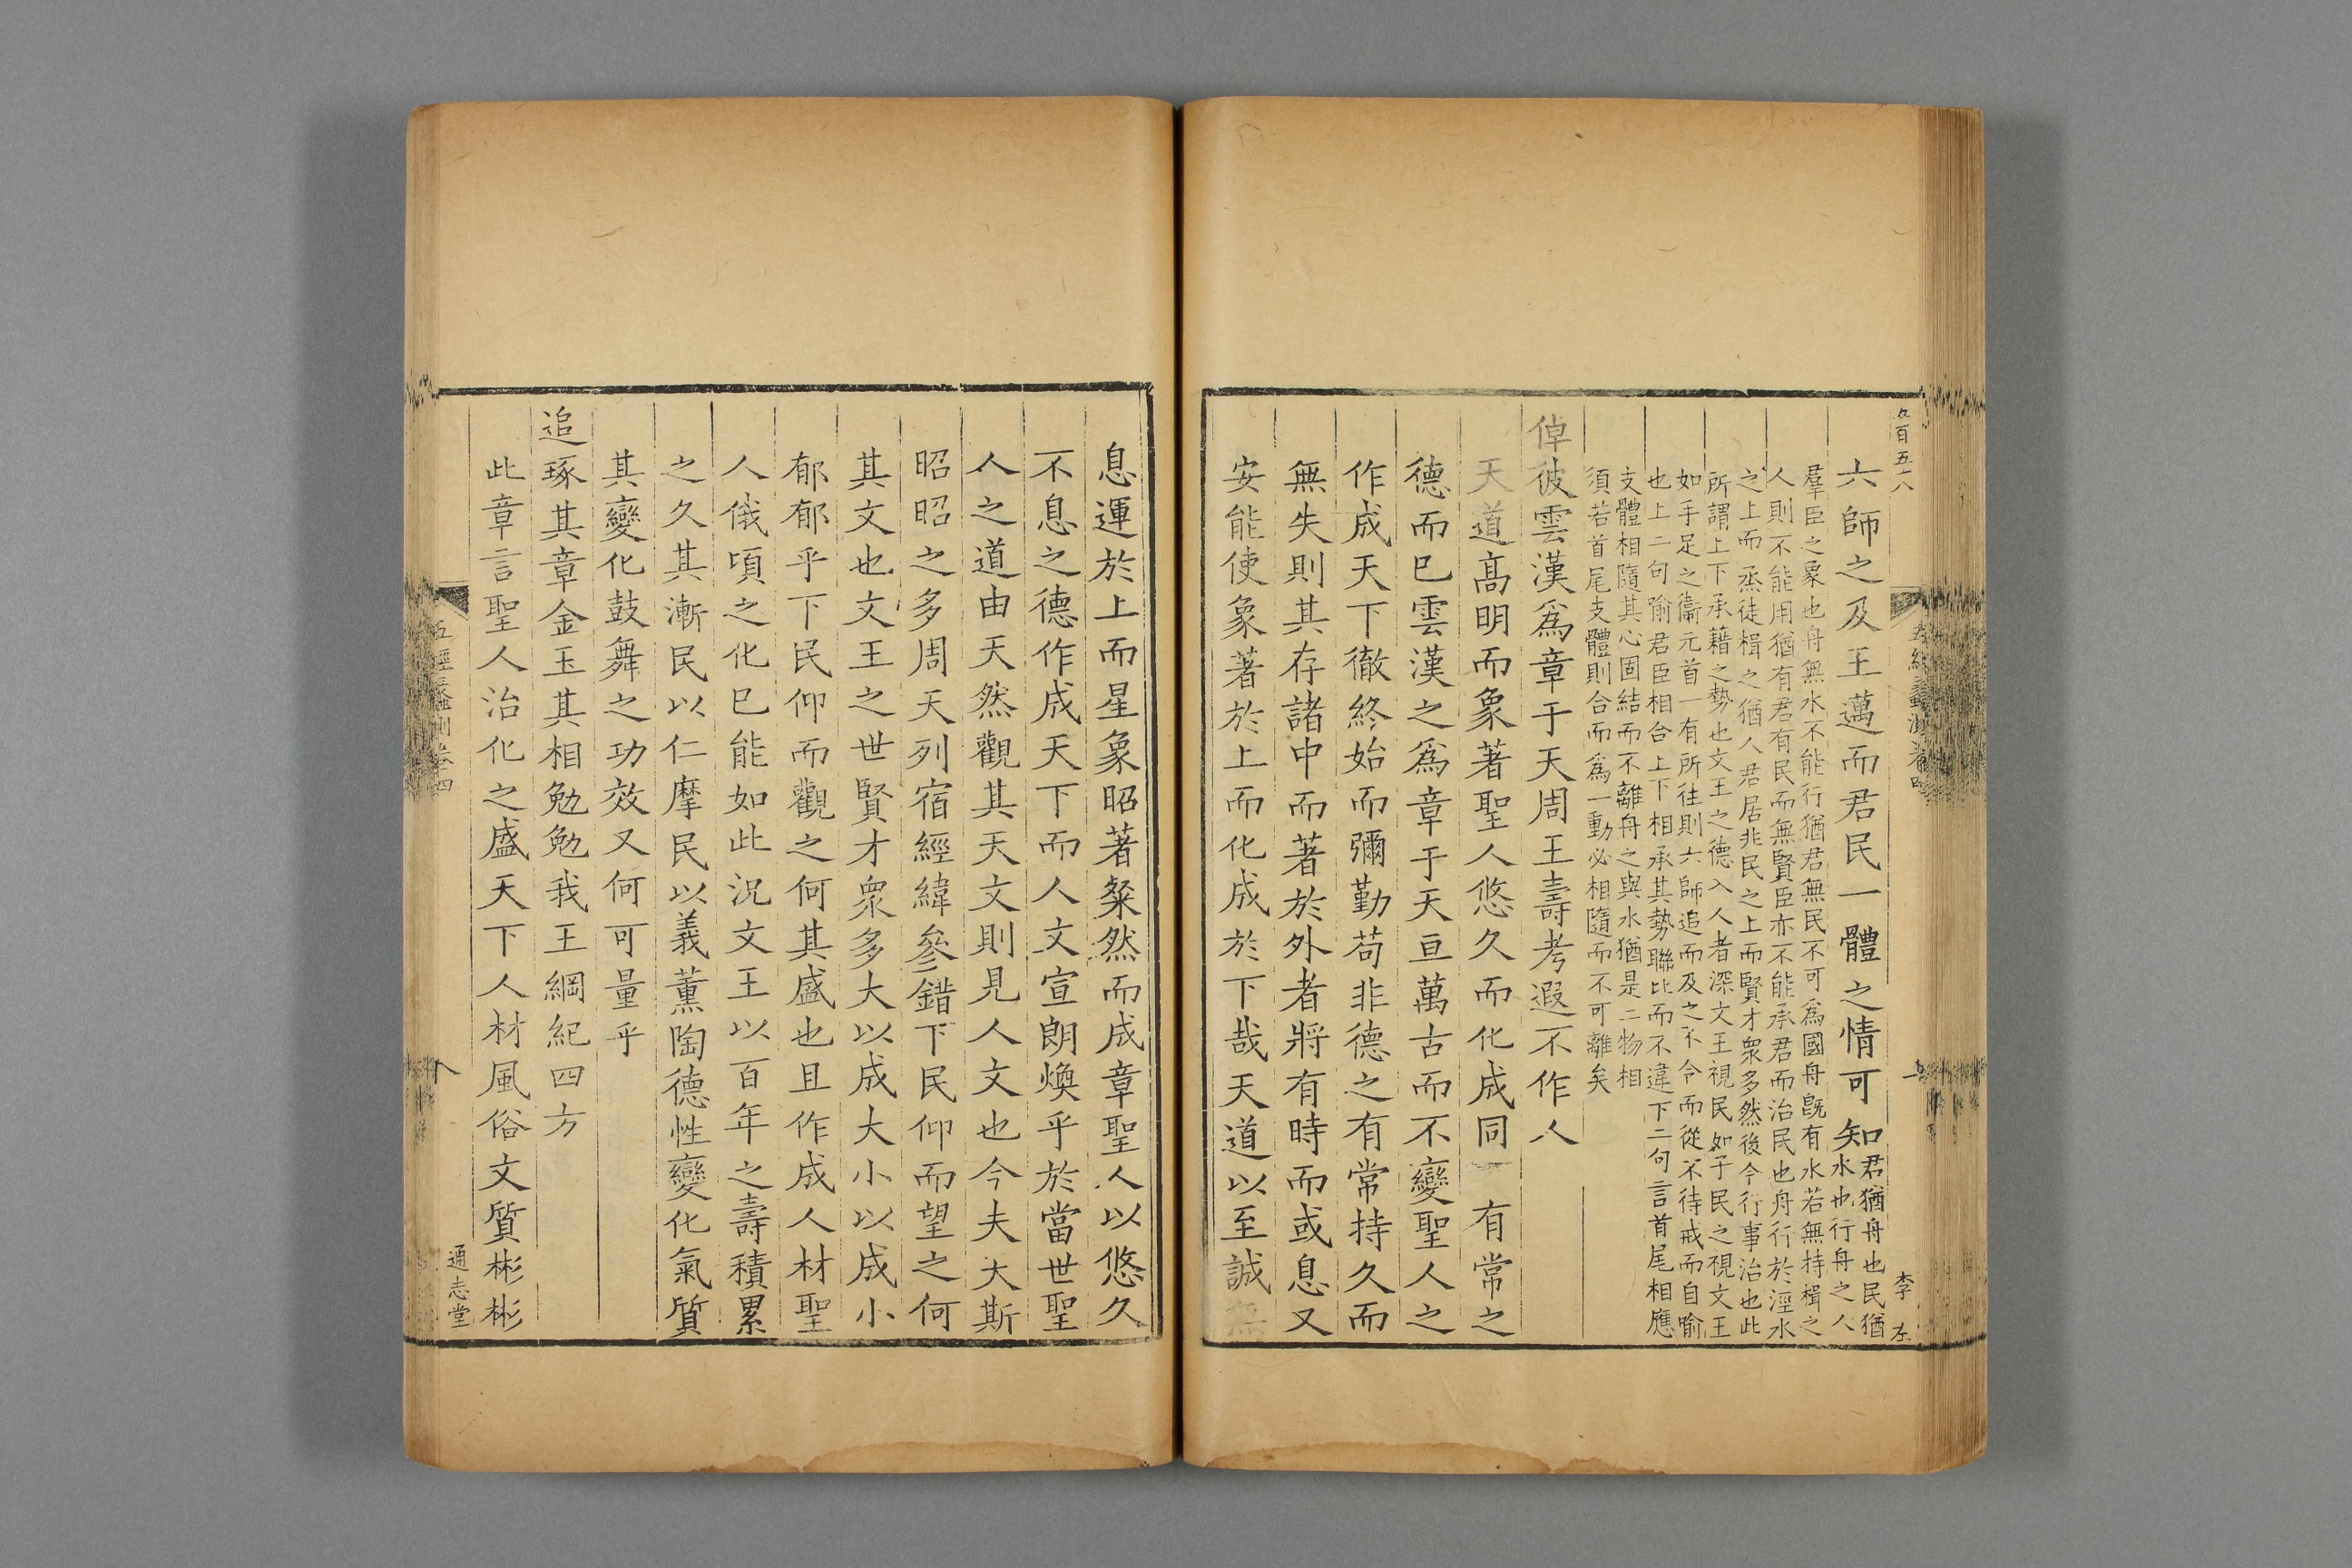 六師之及王邁而君民一體之情可知君猶舟也民猶
水也行舟之人
羣臣之象也舟無水不能行猶君無民不可爲國舟旣有水若無持楫之
人則不能用猶有君有民而無賢臣亦不能承君而治民也舟行於涇水
之上而烝徒楫之猶人君居非民之上而賢才衆多然後令行事治也此
所謂上下承藉之勢也文王之德入人者深文王視民如子民之視文王
如手足之衞元首一有所往則六師追而及之不令而從不待戒而自喻
也上二句喻君臣相合上下相承其勢聯比而不違下二句言首尾相應
支體相隨其心固結而不離舟之與水猶是二物相
須若首尾支體則合而爲一動必相隨而不可離矣
倬彼雲漢爲章于天周王壽考遐不作人
天道髙明而象著聖人悠久而化成同一有常之
德而已雲漢之爲章于天亘萬古而不變聖人之
作成天下徹終始而彌勤苟非德之有常持久而
無失則其存諸中而著於外者將有時而或息又
安能使象著於上而化成於下哉天道以至誠無
息運於上而星象昭著粲然而成章聖人以悠久
不息之德作成天下而人文宣朗煥乎於當世聖
人之道由天然觀其天文則見人文也今夫大斯
昭昭之多周天列宿經緯參錯下民仰而望之何
其文也文王之世賢才衆多大以成大小以成小
郁郁乎下民仰而觀之何其盛也且作成人材聖
人俄頃之化巳能如此況文王以百年之壽積累
之久其漸民以仁摩民以義薰陶德性變化氣質
其變化鼓舞之功效又何可量乎
追琢其章金玉其相勉勉我王綱紀四方
此章言聖人治化之盛天下人材風俗文質彬彬
通志堂